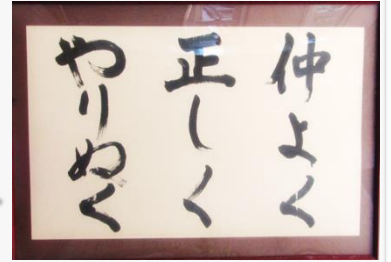 仲よく
正しく
やりぬく